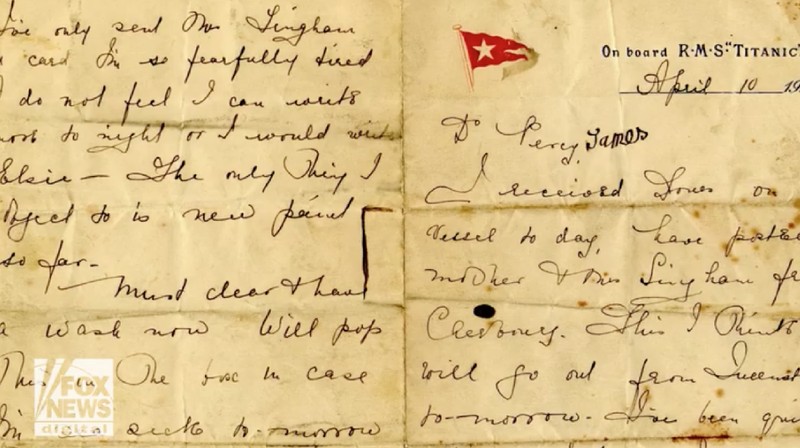 I've only sent Mrs Singham
a card I'm so fearfully tired
I do not feel I can write
more to night or I would write
Elsie — The only Thing I
object to is new paint
so far-
Must clear & have
a wash now Will pop
This in The box in case
I'm sea sick to-morrow
FOX
NEWS
digital
On board R·M·S "TITANIC"
April 10 19
Dr Percy, James
I received Yours on
Vessel to day, have posted
mother & Mrs Singham
Cherbourg. This I Think
will go out from Queenst
to-morrow- I've been